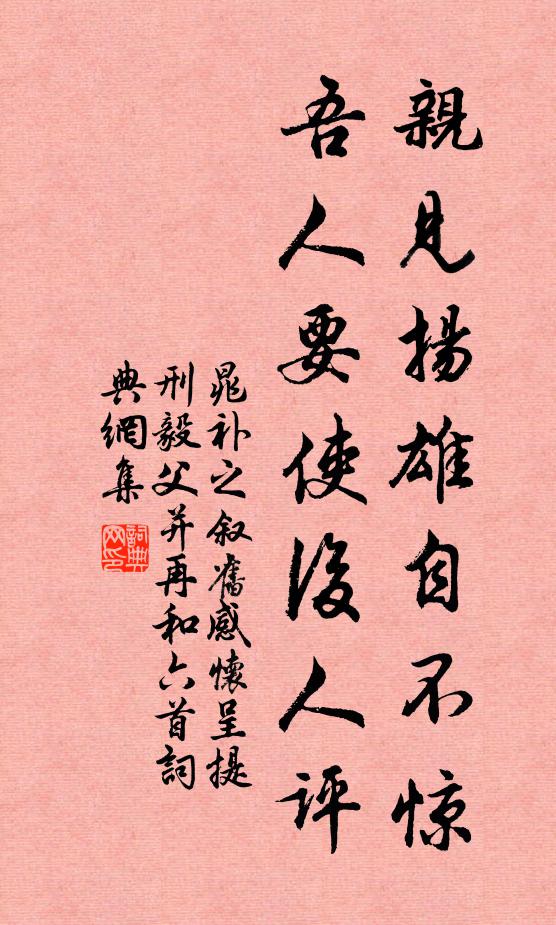 親見揚雄自不惊
吾人要使後人评
晁补之叙舊感懷呈提
刑毅父并再和六首詞
典網集
詞典网印